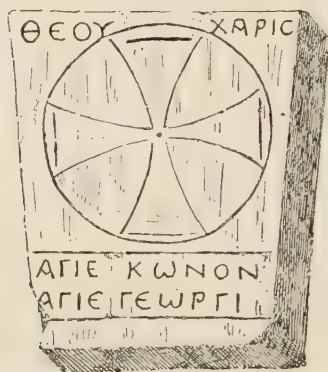 ΘΕΟΥ ΧΑΡΙC
ΑΓΙΕ ΚѠΝΟΝ
ΑΓΙΕ ΓΕѠΡΓΙ